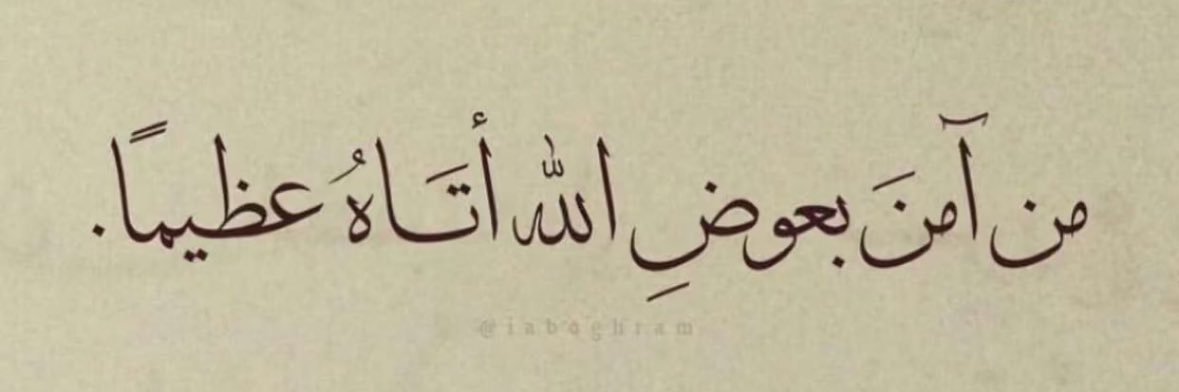 من آمنَ بعوضِ اللّه أتَاهُ عظيماً.
@iaboghram